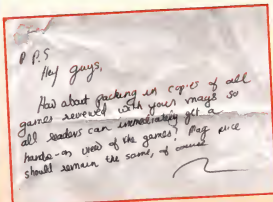 P P.S
Hey guys,
How about packing in copies of all
games reviewed with your mags so
all readers can immediately get a
hands-on view of the games? Mag price
should remain the same, of course